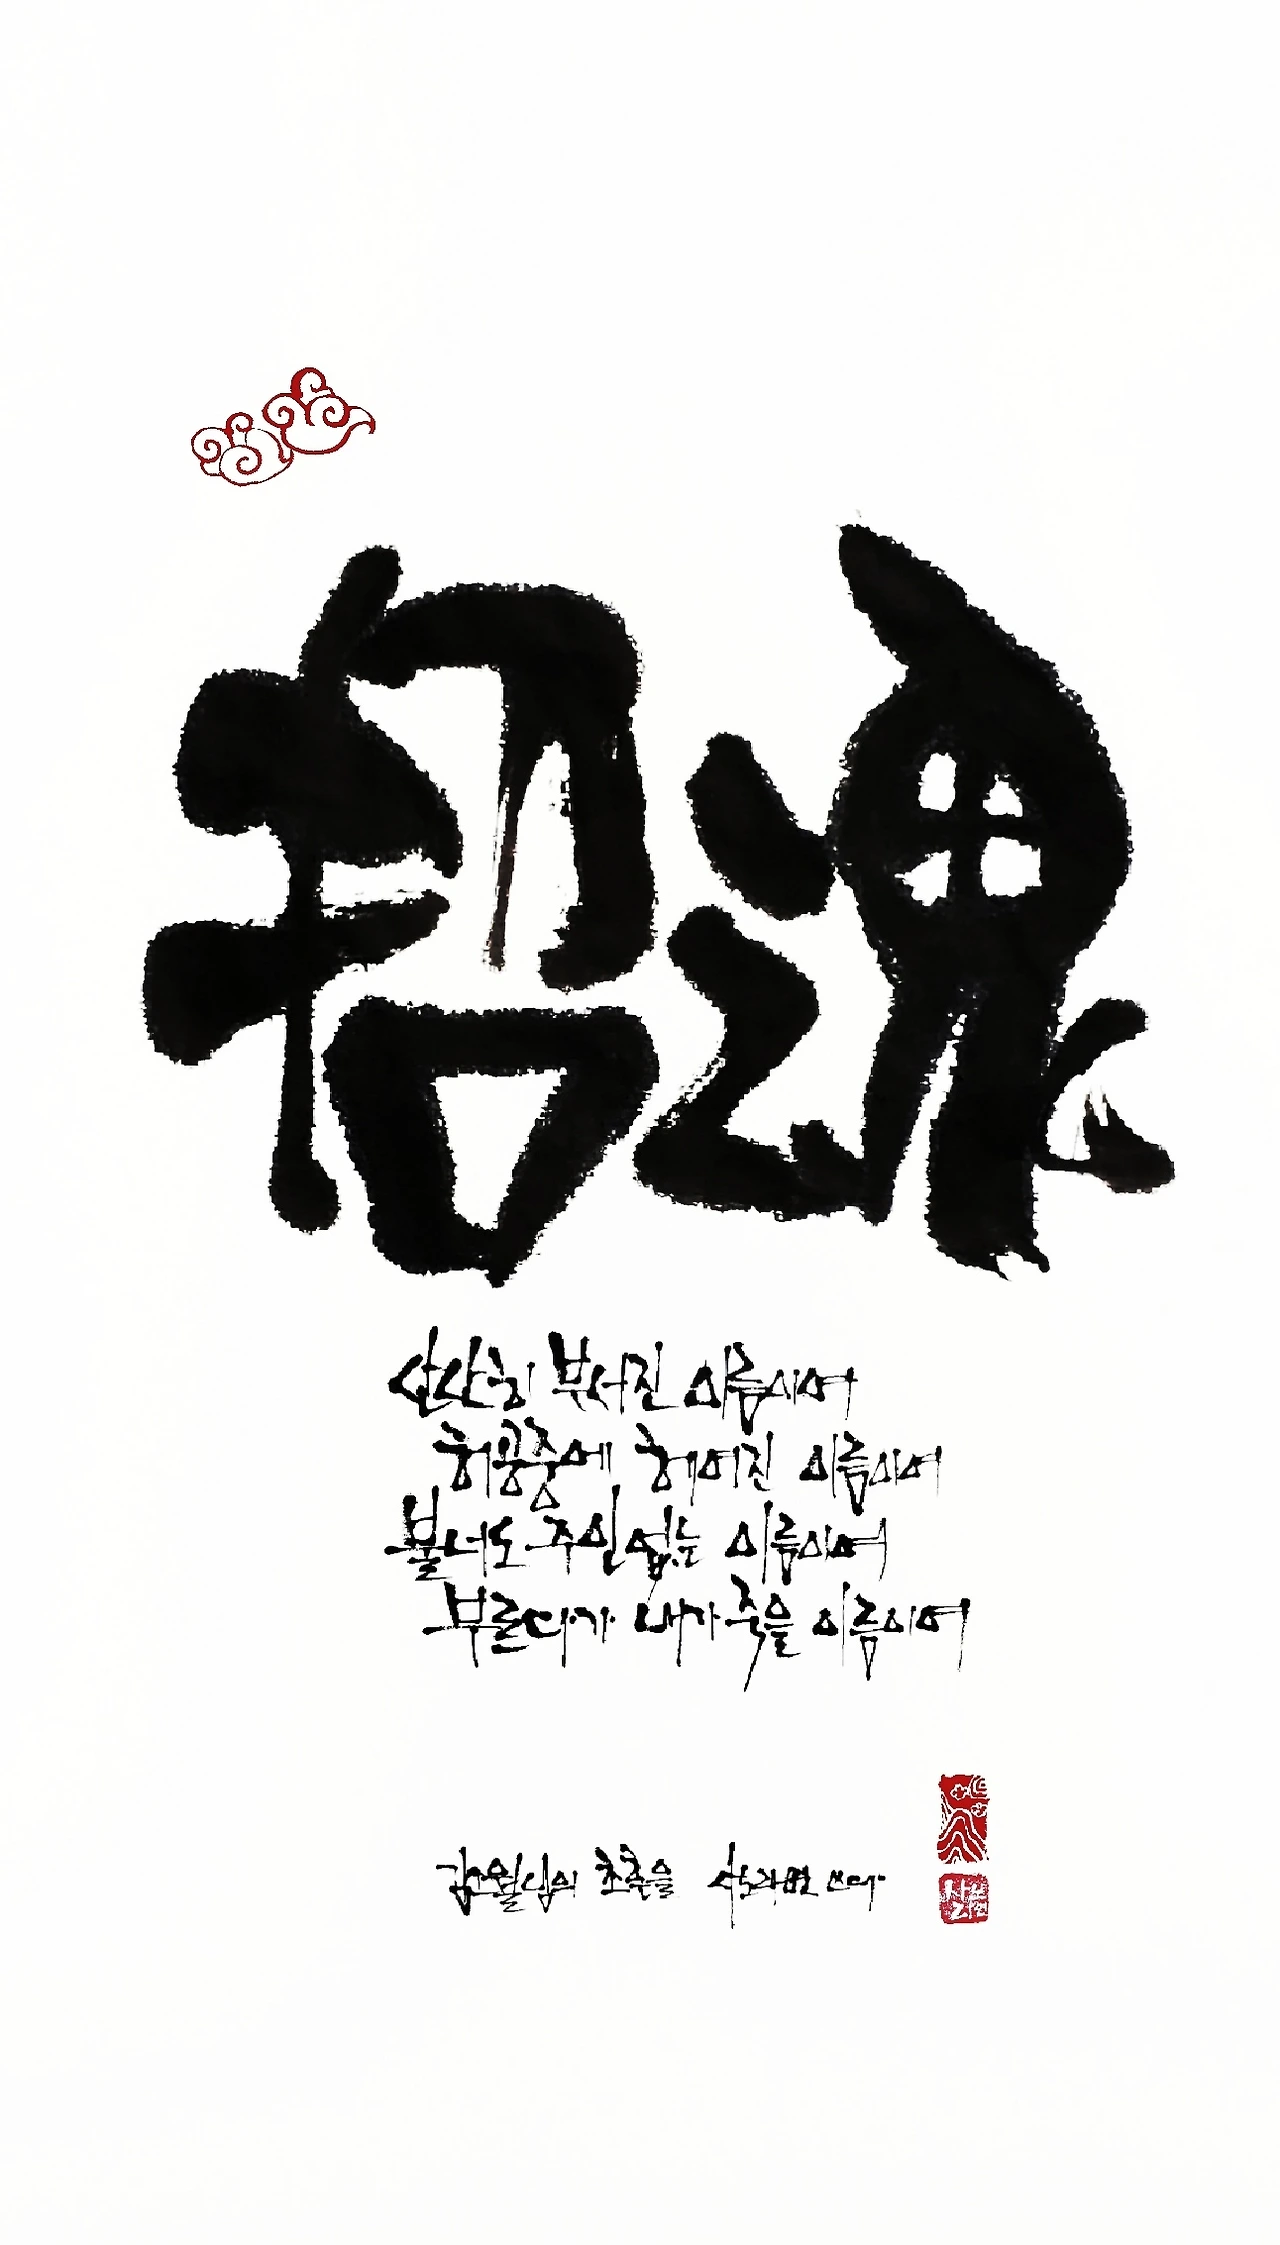 招魂
산산히 부서진 이름이여
허공중에 헤어진 이름이여
불너도 주인없는 이름이여
부르다가 내가 죽을 이름이여
김소월님의 초혼을 쓰다